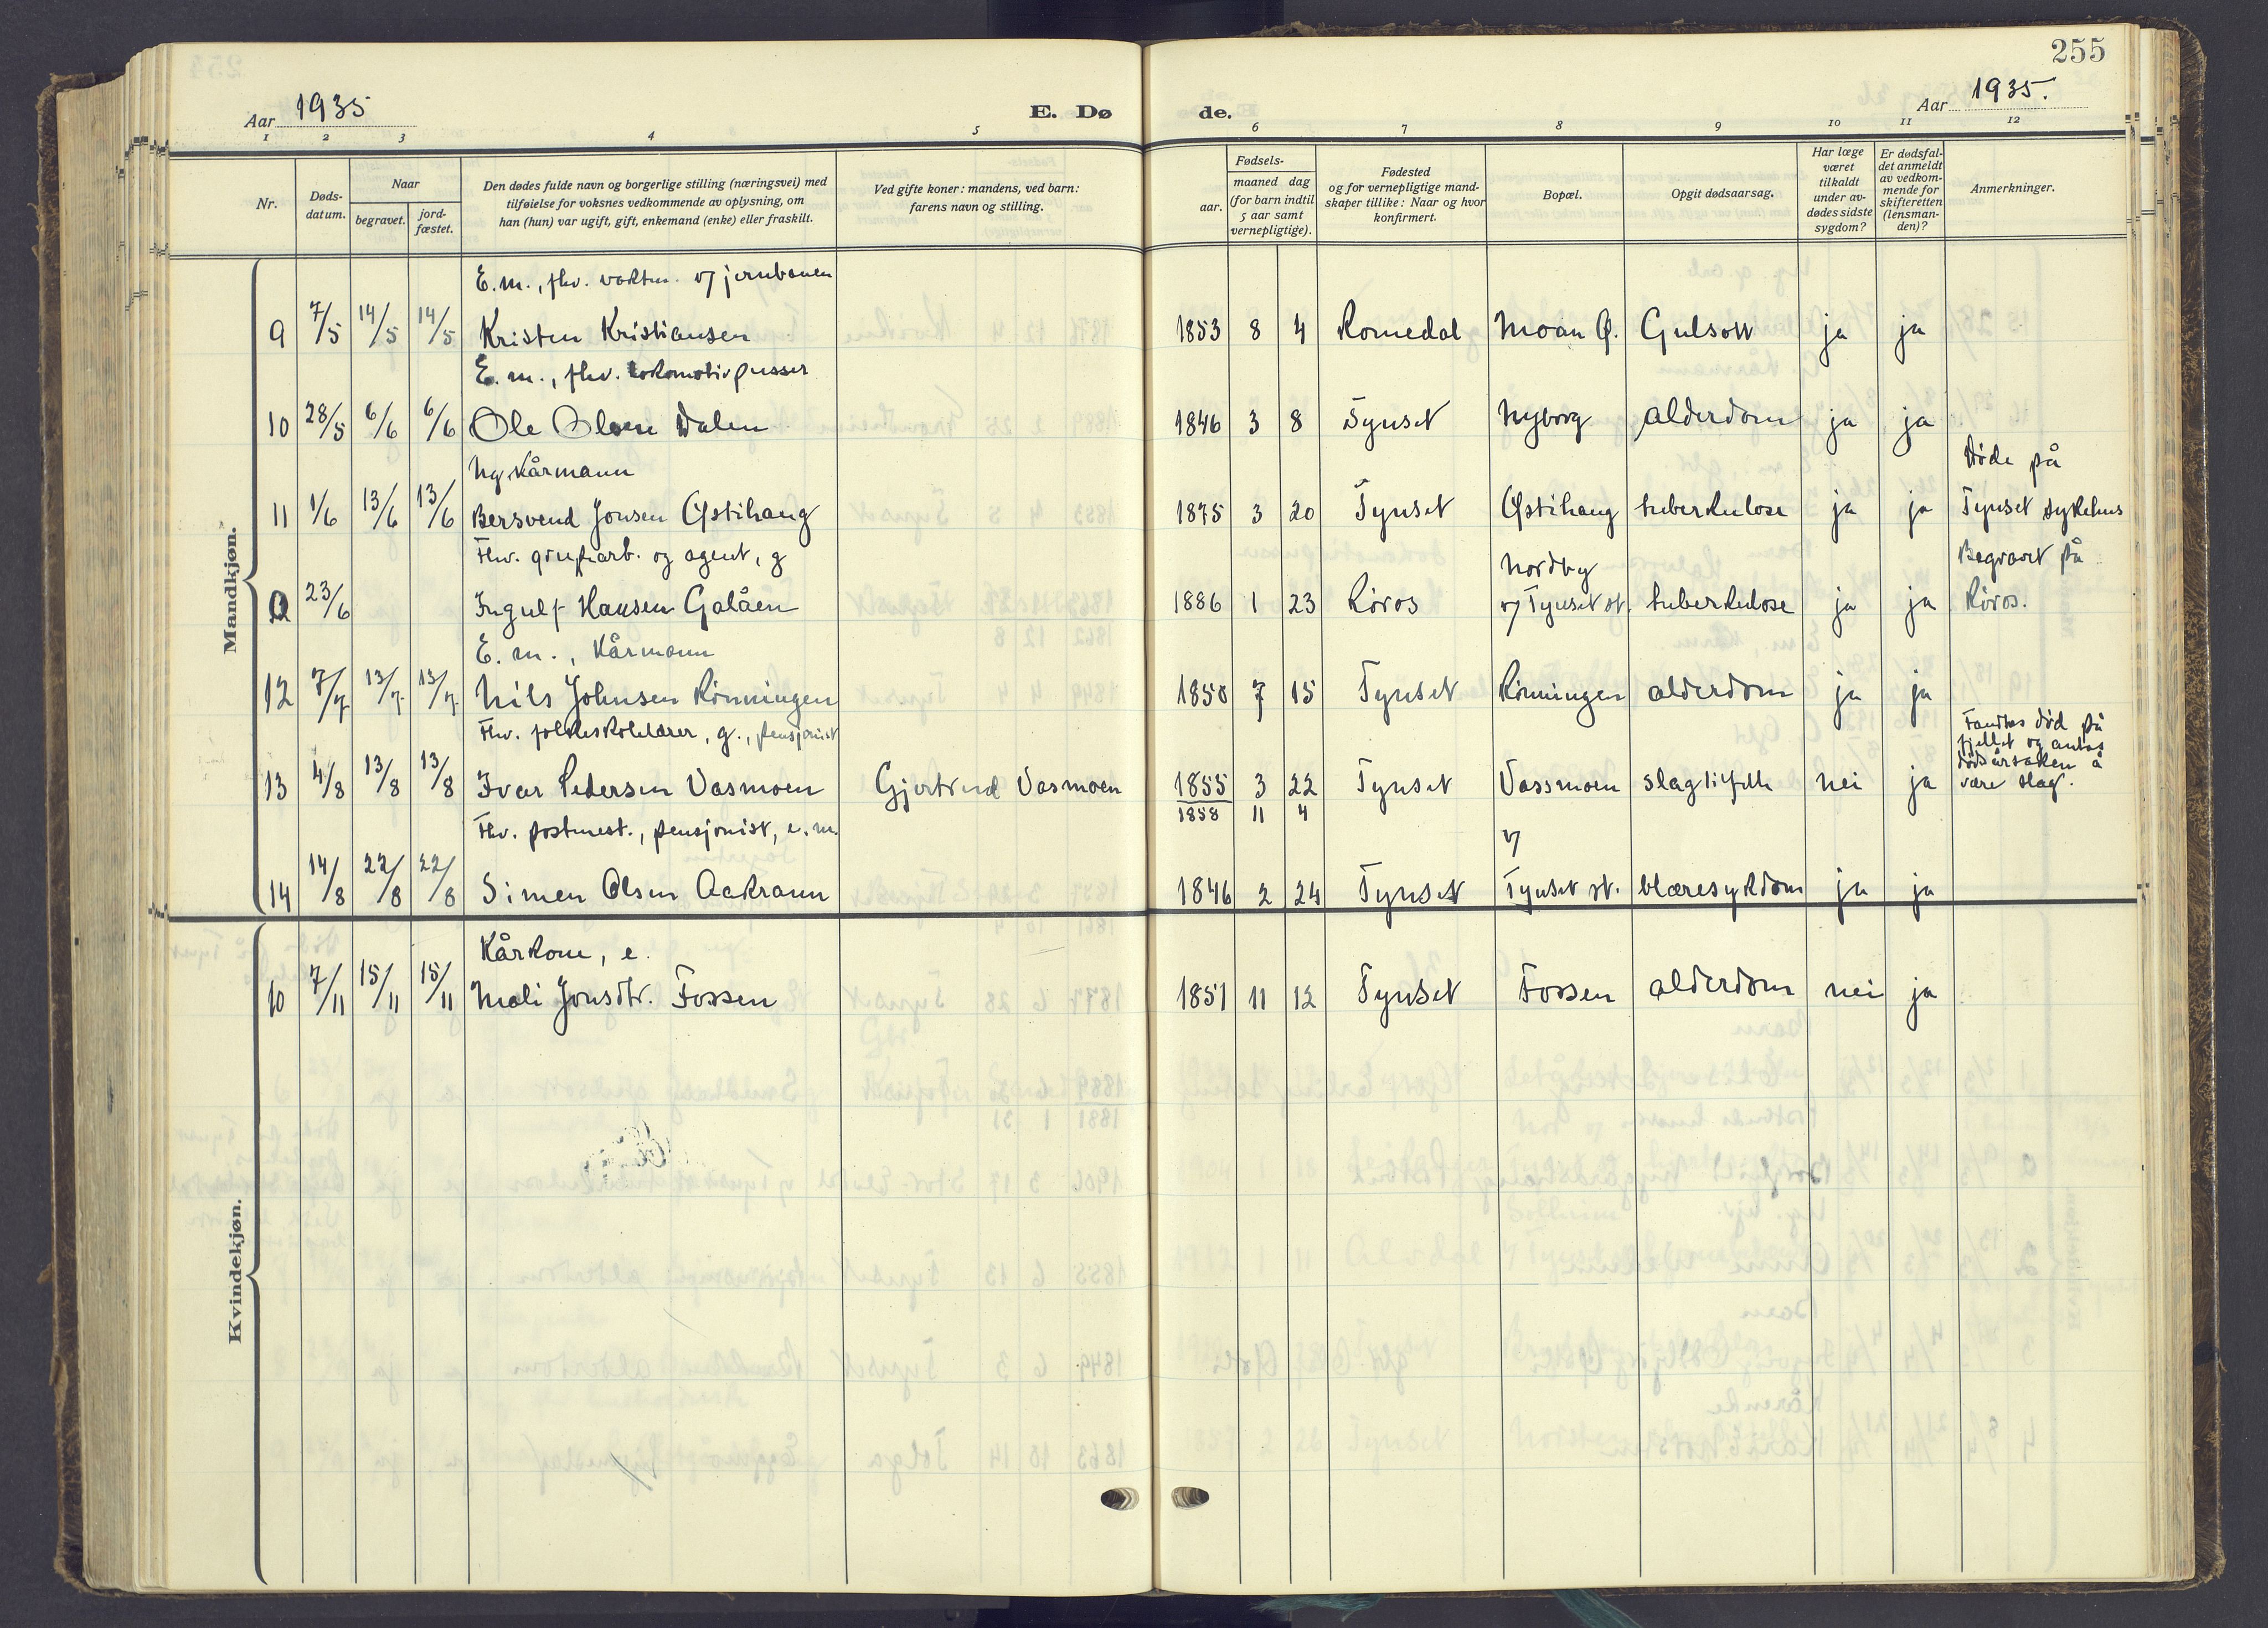 255
Aar 1935
E. Dø
de.
Aar 1935.
1 2 3 4 5 6 7 8 9 10 11 12
Nr.
Døds-
datum.
Naar
begravet.
jord-
fæstet.
Den dødes fulde navn og borgerlige stilling (næringsvei) med
tilføielse for voksnes vedkommende av oplysning, om
han (hun) var ugift, gift, enkemand (enke) eller fraskilt.
Ved gifte koner: mandens, ved barn:
farens navn og stilling.
Fødsels-
aar.
maaned dag
(for barn indtil
5 aar samt
vernepligtige).
Fødested
og for vernepligtige mand-
skaper tillike: Naar og hvor
konfirmert.
Bopæl.
Opgit dødsaarsag.
Har læge
været
tilkaldt
under av-
dødes sidste
sygdom?
Er dødsfal-
det anmeldt
av vedkom-
mende for
skifteretten
(lensman-
den)?
Anmerkninger.
Mandkjøn.
E.m., fhv. voktm. v/ jernbanen
9 7/5 14/5 14/5 Kristen Kristiansen 1853 8 4 Romedal Moan Ø. Gulsott ja ja
E.m., fhv. lokomotivpusser
10 28/5 6/6 6/6 Ole Olsen Dalen 1846 3 8 Tynset Nyborg alderdom ja ja
Ug. Kårmann
11 1/6 13/6 13/6 Bersvend Jonsen Østihaug 1875 3 20 Tynset Østihaug tuberkulose ja ja
Døde på
Tynset sykehus
Fhv. grubearb. og agent, g
a 23/6 Ingulf Hansen Galåen 1886 1 23 Røros
Nordby
v/ Tynset st. tuberkulose ja ja
Begravet på
Røros.
E.m., Kårmann
12 7/7 13/7 13/7 Nils Johnsen Rønningen 1850 7 15 Tynset Rønningen alderdom ja ja
Fhv. folkeskolelærer, g., pensjonist
13 4/8 13/8 13/8 Ivar Pedersen Vasmoen Gjertrud Vasmoen 1855 3 22 Tynset Vassmoen slagtilfelle nei ja
1858 11 4
Fandtes død på
fjellet og antas
dødsårsaken å
være slag.
Fhv. postmest., pensjonist, e.m.
14 14/8 22/8 22/8 Simen Olsen Aakrann 1846 2 24 Tynset
v/
Tynset st. blæresykdom ja ja
Kvindekjøn.
Kårkone, e.
10 7/11 15/11 15/11 Mali Jonsdtr. Fossen 1851 11 12 Tynset Fossen alderdom nei ja